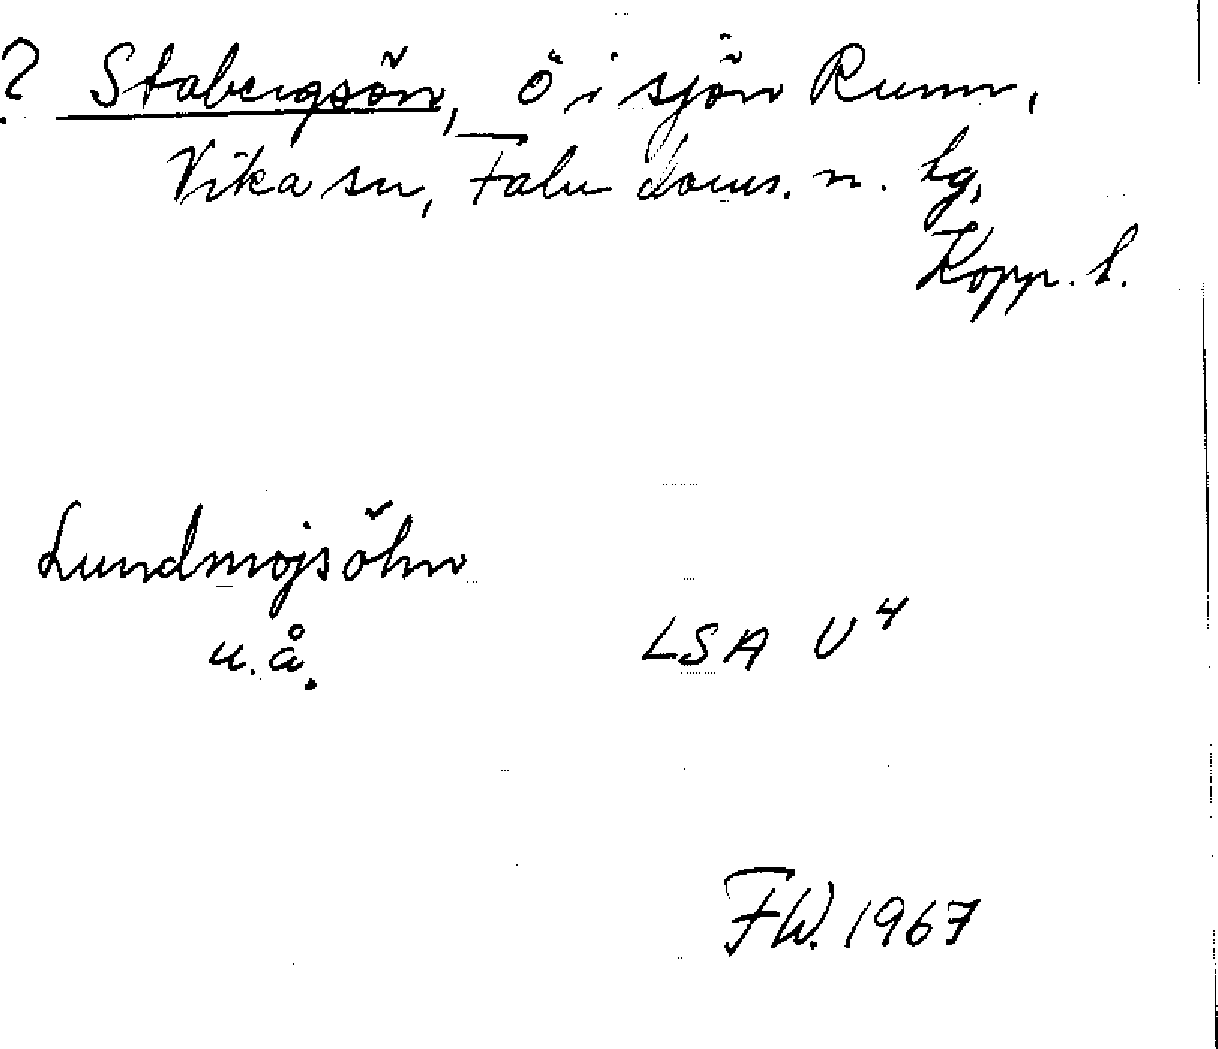 ? Stabergsön, ö i sjön Runn,
Vika sn, Falu doms. n. lg,
Kopp. l.
Lundmojsöhn
u.å. LSA U4
F.W. 1967